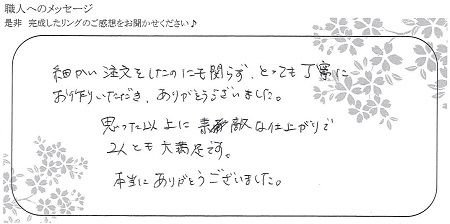 職人へのメッセージ
是非 完成したリングのご感想をお聞かせください♪
細かい注文をしたのにも関らず、とっても丁寧に
お作りいただき、ありがとうございました。
思った以上に素敵な仕上がりで
2人とも大満足です。
本当にありがとうございました。